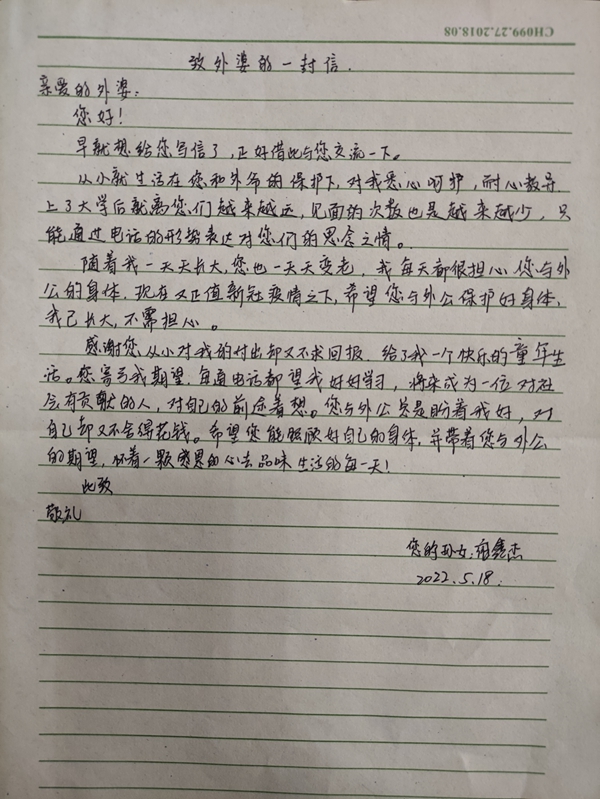 CH099.27.2018.08
致外婆的一封信.
亲爱的外婆:
您好!
早就想给您写信了,正好借此与您交流一下。
从小就生活在您和外爷的保护下,对我悉心呵护,耐心教导.
上了大学后就离您们越来越远,见面的次数也是越来越少,只
能通过电话的形势表达对您们的思念之情。
随着我一天天长大,您也一天天变老,我每天都很担心您与外
公的身体.现在又正值新冠疫情之下,希望您与外公保护好身体,
我已长大,不需担心。
感谢您从小对我的付出却又不求回报.给了我一个快乐的童年生
活。您寄予我期望.每通电话都望我好好学习,将来成为一位对社
会有贡献的人,对自己的前途着想。您与外公总是盼着我好,对
自己却又不舍得花钱。希望您能照顾好自己的身体,并带着您与外公
的期望,怀着一颗感恩的心去品味生活的每一天!
此致
敬礼
您的孙女:鑫杰
2022.5.18.